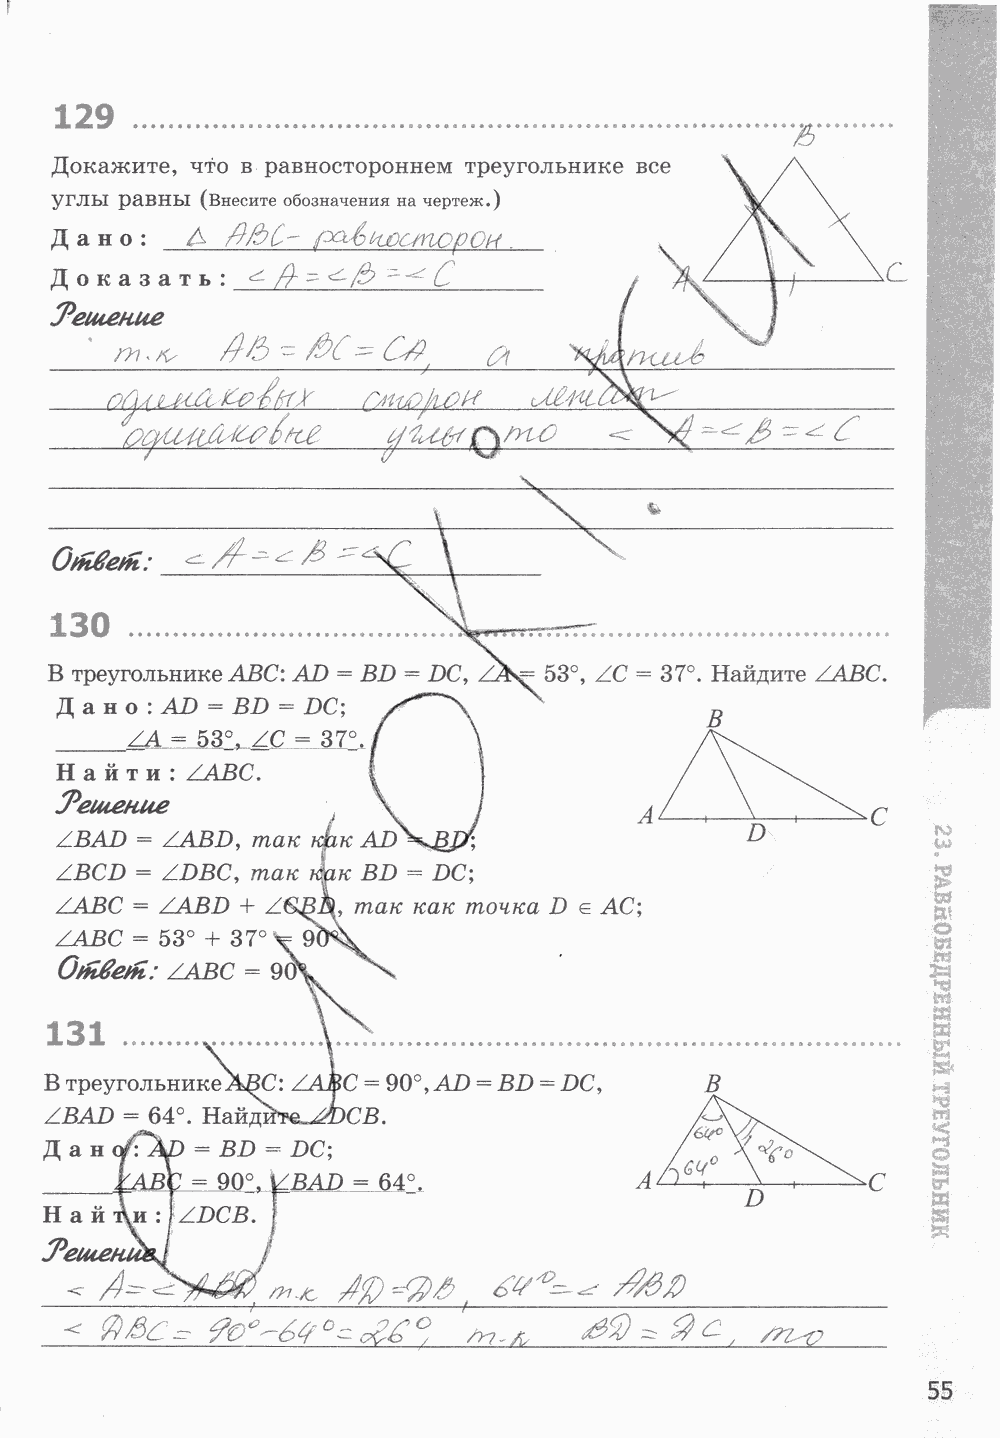 129
B
Докажите, что в равностороннем треугольнике все
углы равны (Внесите обозначения на чертеж.)
Дано: Δ ABC - равносторон.
Доказать: < A = < B = < C
A C
Решение
т.к AB = BC = CA, а против
одинаковых сторон лежат
одинаковые углы, то < A = < B = < C
Ответ: < A = < B = < C
130
В треугольнике ABC: AD = BD = DC, ∠A = 53°, ∠C = 37°. Найдите ∠ABC.
Дано: AD = BD = DC;
∠A = 53°, ∠C = 37°.
Найти: ∠ABC.
Решение
∠BAD = ∠ABD, так как AD = BD;
∠BCD = ∠DBC, так как BD = DC;
∠ABC = ∠ABD + ∠CBD, так как точка D ∈ AC;
∠ABC = 53° + 37° = 90°.
Ответ: ∠ABC = 90°
B
A D C
131
В треугольнике ABC: ∠ABC = 90°, AD = BD = DC,
∠BAD = 64°. Найдите ∠DCB.
Дано: AD = BD = DC;
∠ABC = 90°, ∠BAD = 64°.
Найти: ∠DCB.
Решение
< A = < ABD, т.к AD = DB, 64° = < ABD
< DBC = 90° - 64° = 26°, т.к BD = DC, то
B
64° 26°
64°
A D C
23. РАВНОБЕДРЕННЫЙ ТРЕУГОЛЬНИК
55